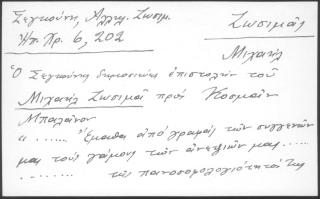 Σεγκούνη, Αλληλ. Ζωσιμ.
Ηπ. Χρ. 6, 202
Ζωσιμᾶς
Μιχαήλ
Ὁ Σεγκούνης δημοσιεύει ἐπιστολήν τοῦ
Μιχαήλ Ζωσιμᾶ πρός Κοσμᾶν
Μπαλάνον
" ...... "Ἔμαθα ἀπό γραμαί τῶν συγγενῶν
μας τούς γάμους τῶν ἀνεψιῶν μας .....
........ τῆς πανοσομολογιότητός της